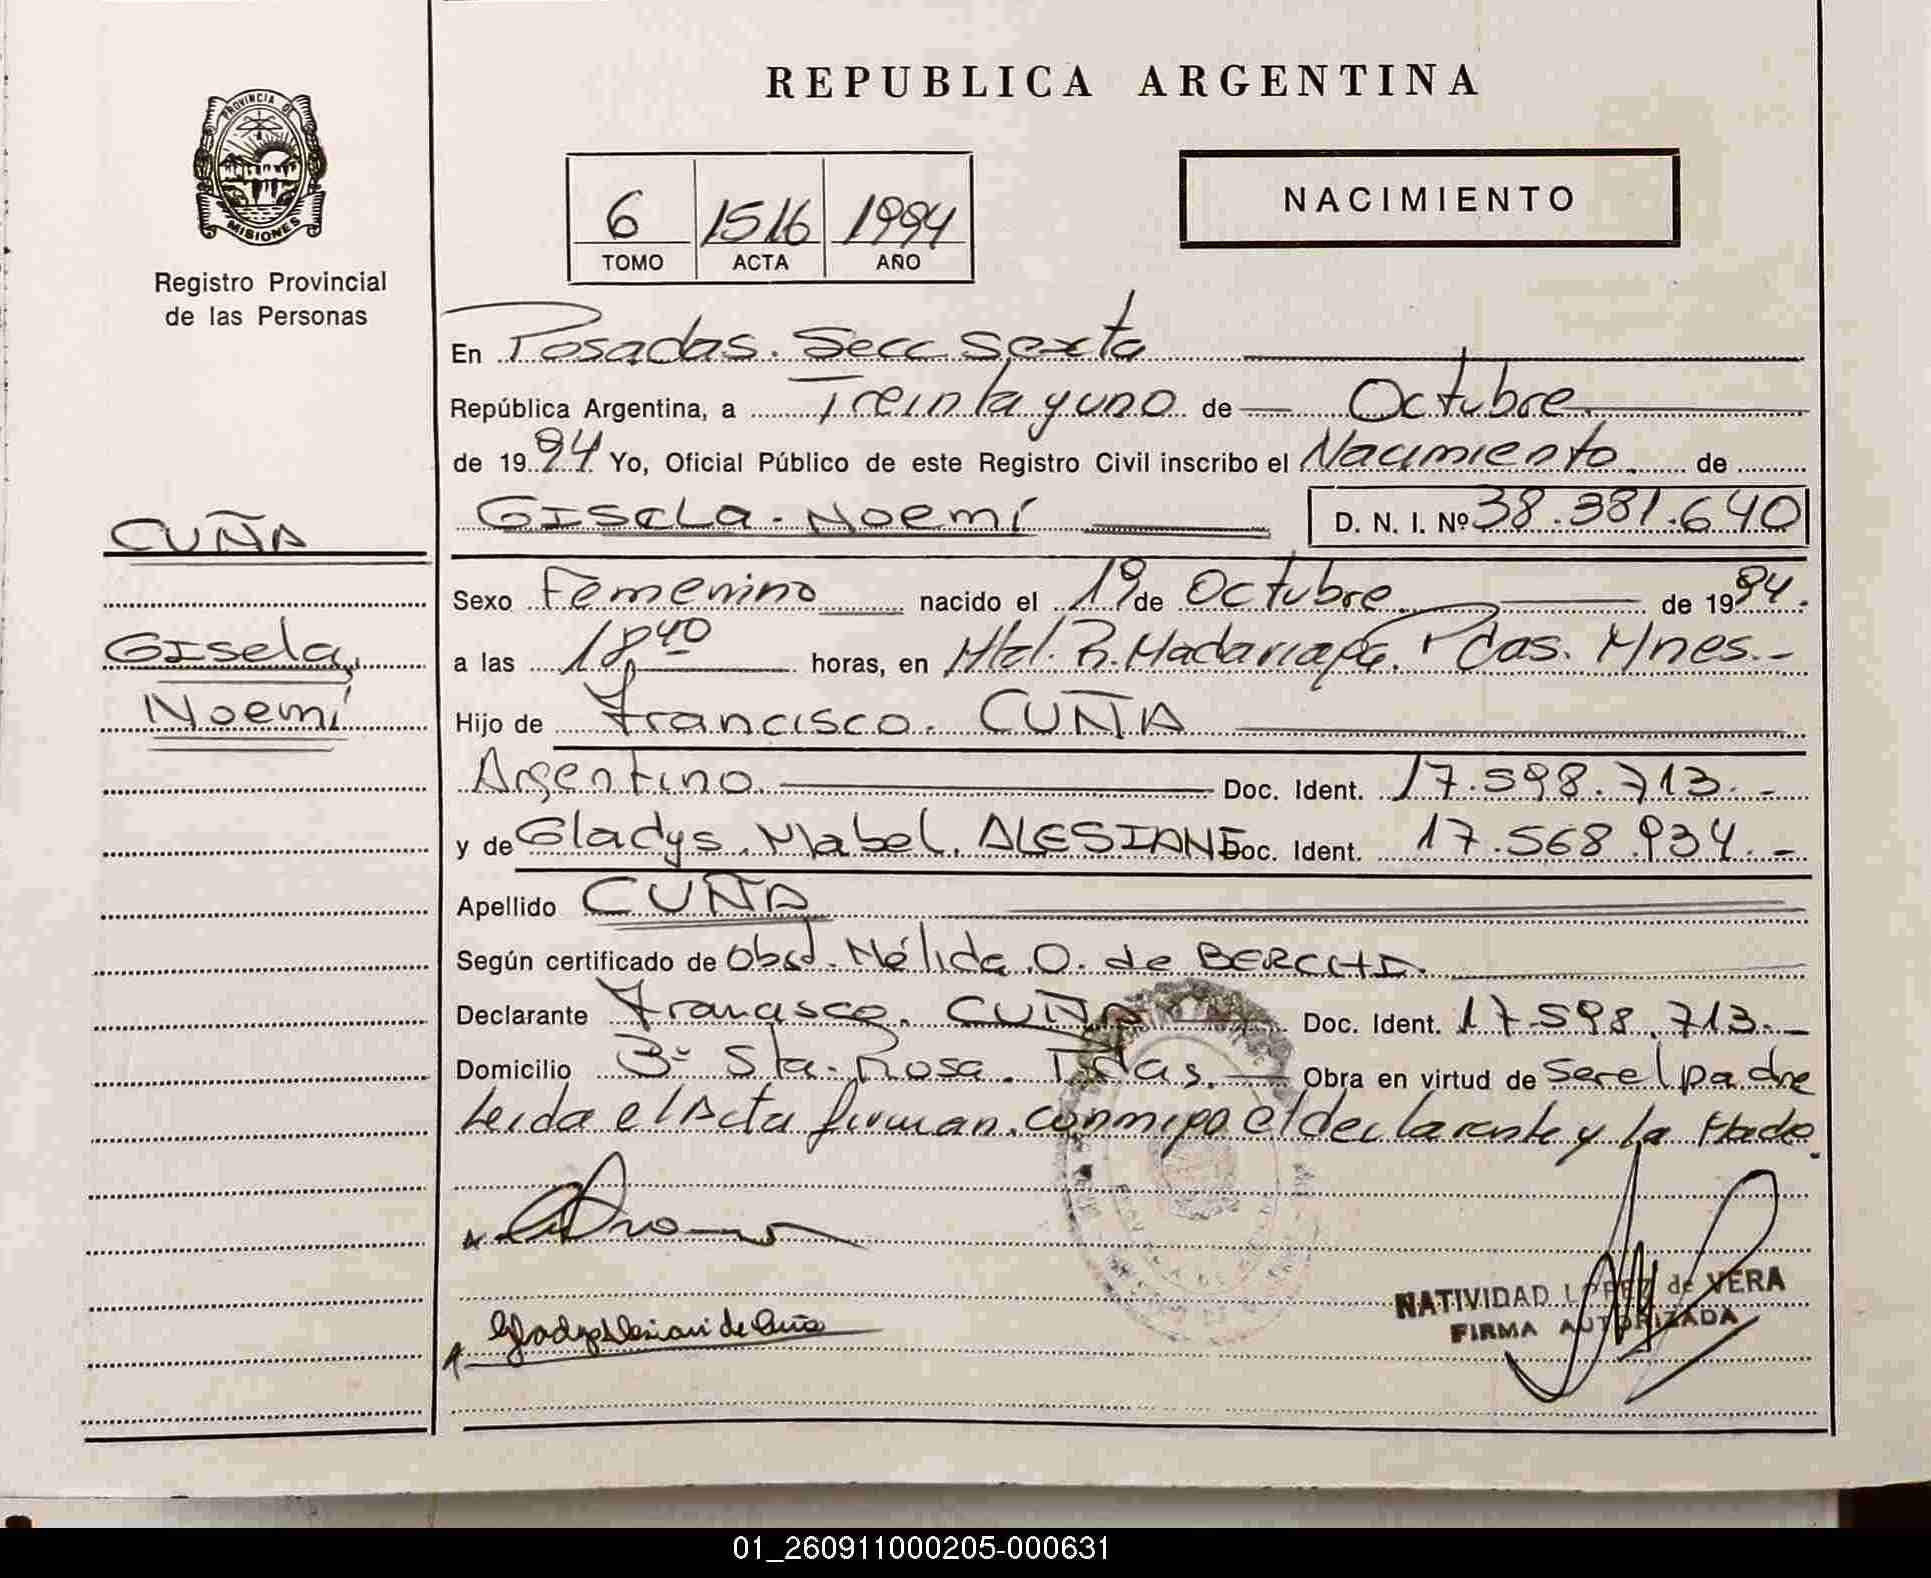 REPUBLICA ARGENTINA
PROVINCIA DE
MISIONES
Registro Provincial
de las Personas
6 1516 1994
TOMO ACTA AÑO
NACIMIENTO
En Posadas. Secc. Sexta
República Argentina, a Treinta y uno de Octubre
de 1994 Yo, Oficial Público de este Registro Civil inscribo el Nacimiento de
Gisela. Noemí D. N. I. Nº 38.381.640
CUÑA
Gisela
Noemí
Sexo Femenino nacido el 19 de Octubre de 1994.
a las 18,40 horas, en Htal. R. Madariaga. Pdas. Mnes.-
Hijo de Francisco. CUÑA
Argentino Doc. Ident. 17.598.713.-
y de Gladys. Mabel. ALESIANI Doc. Ident. 17.568.934.-
Apellido CUÑA
Según certificado de Obst. Nélida. O. de BERCHI
Declarante Francisco. CUÑA Doc. Ident. 17.598.713.-
Domicilio Bº Sta. Rosa. Pdas. Obra en virtud de ser el padre
Leida el Acta firman. conmigo el declarante y la Madre.
NATIVIDAD LOPEZ de VERA
FIRMA AUTORIZADA
01_260911000205-000631